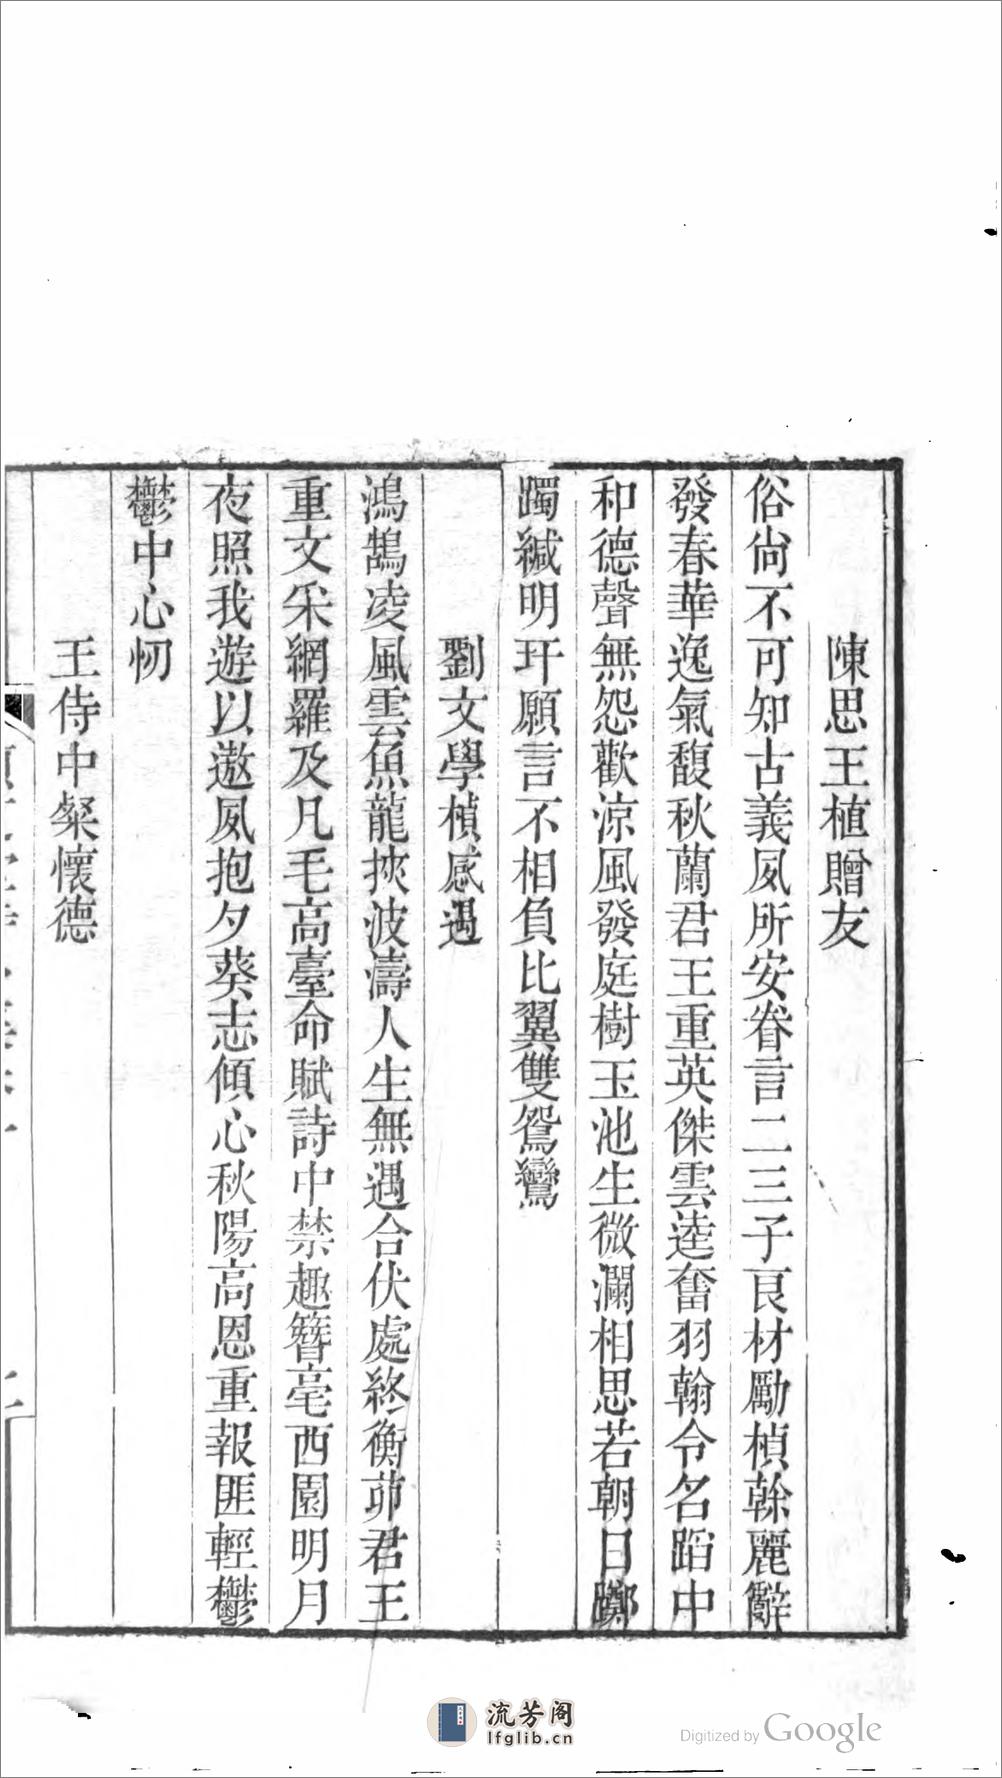 陳思王植贈友
俗尙不可知古義夙所安眷言二三子良材勵楨榦麗辭
發春華逸氣馥秋蘭君王重英傑雲逵奮羽翰令名蹈中
和德聲無怨歡涼風發庭樹玉池生微瀾相思若朝日躑
躅緘明玕願言不相負比翼雙鴛鸞
劉文學楨感遇
鴻鵠凌風雲魚龍挾波濤人生無遇合伏處終衡茆君王
重文采網羅及凡毛高臺命賦詩中禁趣簪亳西園明月
夜照我遊以遨夙抱夕葵志傾心秋陽高恩重報匪輕鬱
鬱中心忉
王侍中粲懷德
流芳阁
lfglib.cn
Digitized by Google